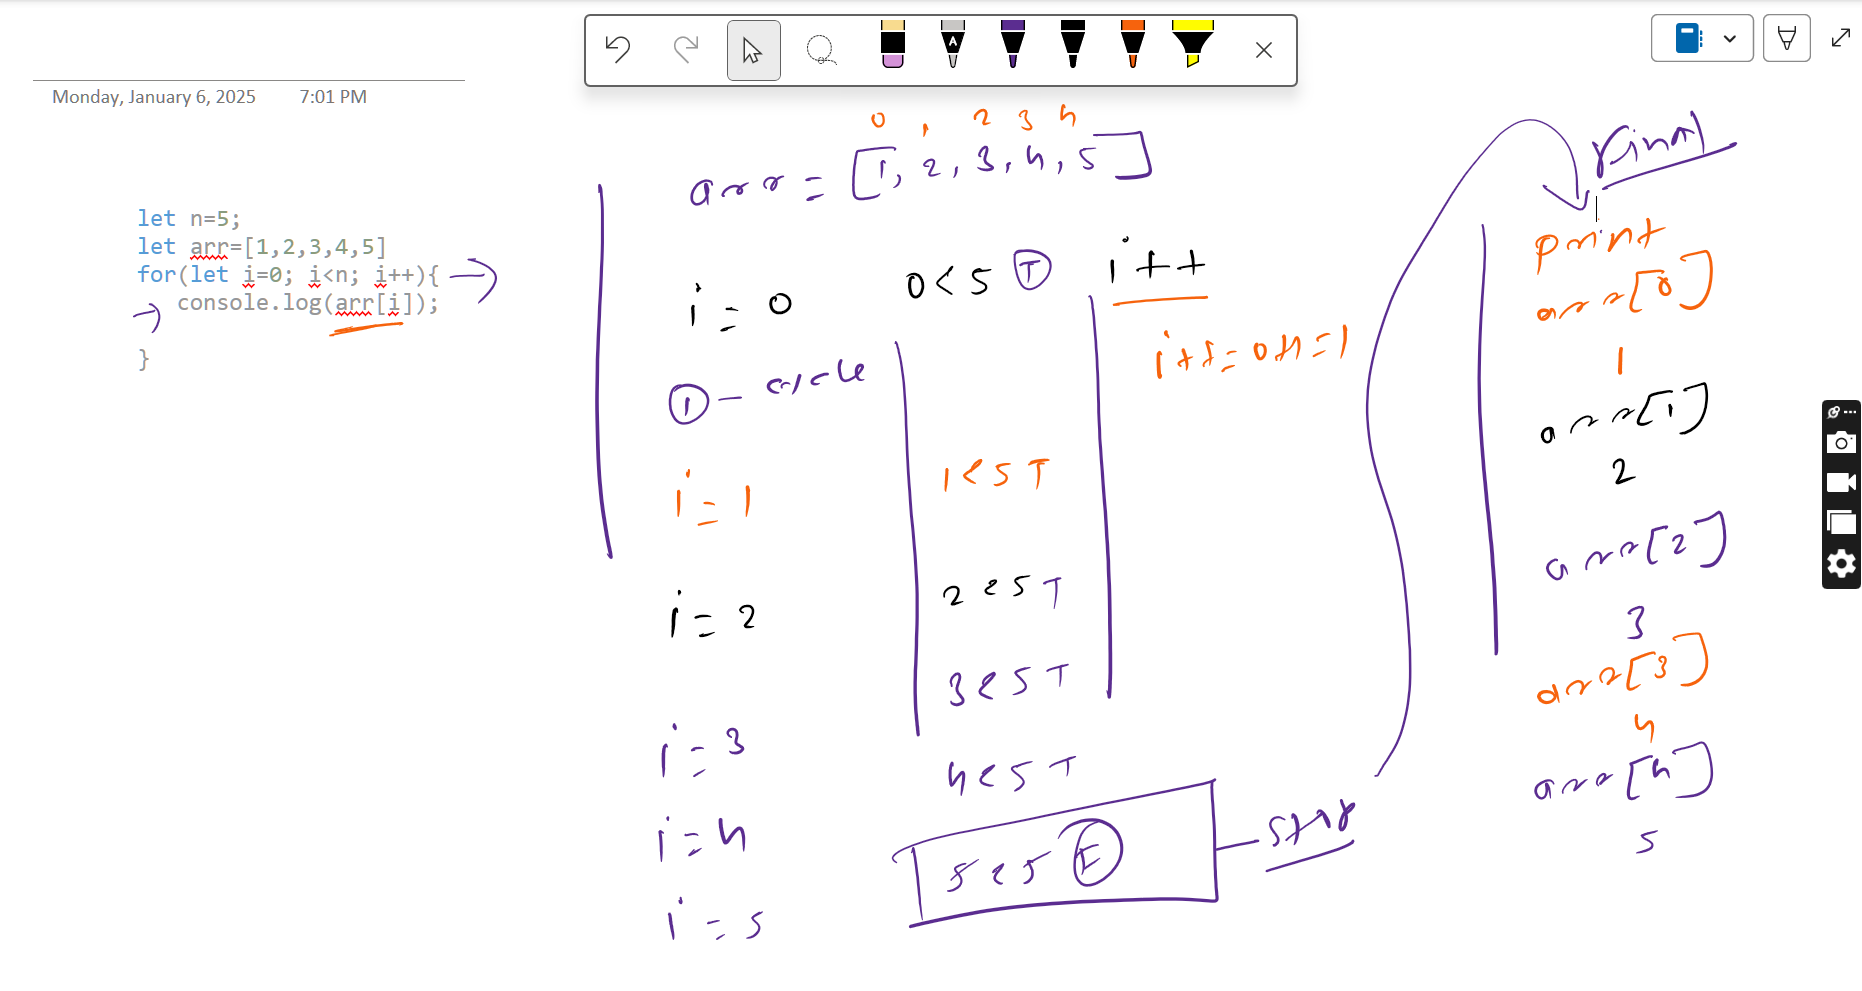 Monday, January 6, 2025 7:01 PM
let n=5;
let arr=[1,2,3,4,5]
for(let i=0; i<n; i++){
console.log(arr[i]);
}
0 1 2 3 4
arr = [1, 2, 3, 4, 5]
i = 0 0 < 5 T i++
i++ = 0+1 = 1
1 - cycle
i = 1 1 < 5 T
i = 2 2 < 5 T
3 < 5 T
i = 3
4 < 5 T
i = 4
5 < 5 F - stop
i = 5
Final
print
arr[0]
1
arr[1]
2
arr[2]
3
arr[3]
4
arr[4]
5